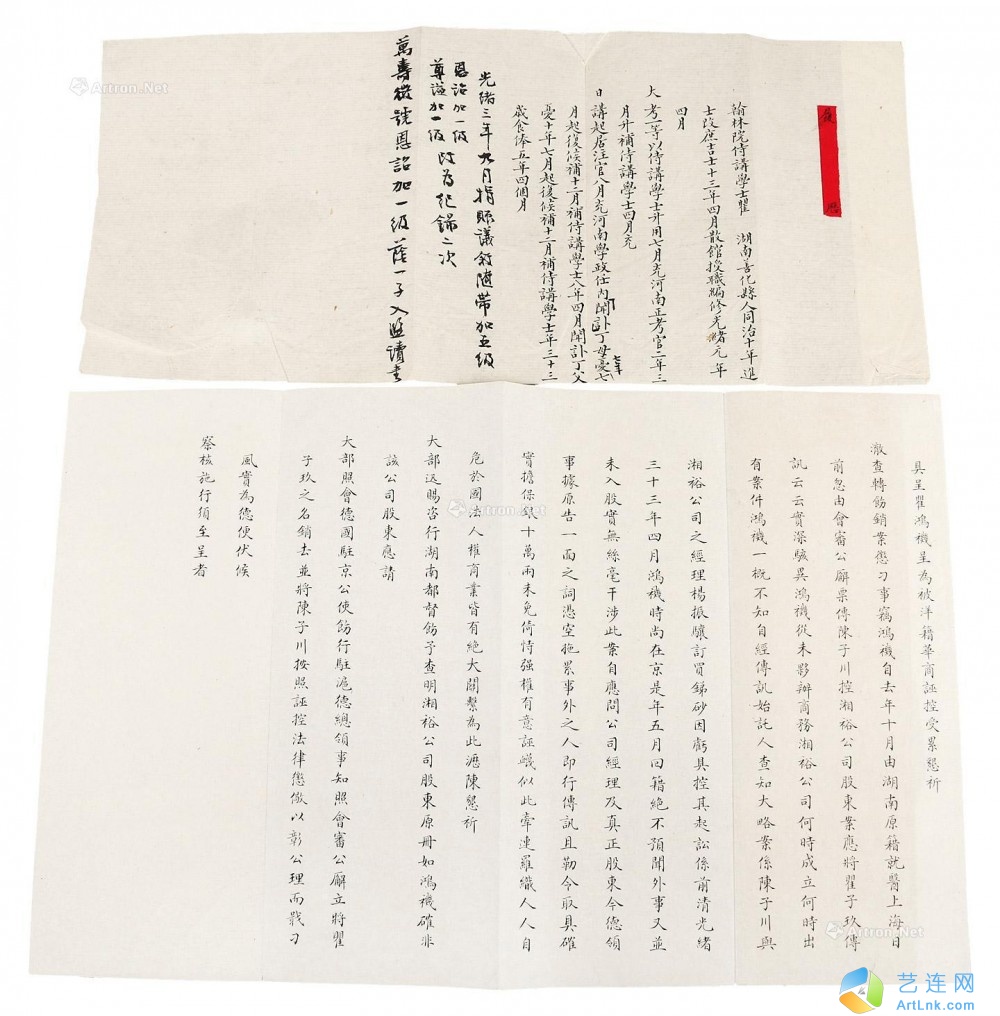 履歷
翰林院侍講學士瞿 湖南善化縣人同治十年進
士改庶吉士十三年四月散館授職編修光緒元年
四月
大考一等以侍講學士升用七月充河南正考官二年三
月升補侍講學士四月充
日講起居注官八月充河南學政任內聞訃丁母憂七
七年
月起復候補十二月補侍講學士八年四月聞訃丁父
憂十年七月起復候補十二月補侍講學士年三十三
歲食俸五年四個月
光緒三年九月捐賑議敘隨帶加五級
恩詔加一級
尊謚加一級 改為紀錄二次
萬壽 恩詔加一級蔭一子入監讀書
具呈瞿鴻禨呈為被洋籍華商誣控受累懇祈
澈查轉飭銷案懲刁事竊鴻禨自去年十月由湖南原籍就醫上海日
前忽由會審公廨票傳陳子川控湘裕公司股東案應將瞿子玖傳
訊云云實深駭異鴻禨從未夥辦商務湘裕公司何時成立何時出
有案件鴻禨一概不知自經傳訊始託人查知大略案係陳子川與
湘裕公司之經理楊振驤訂買銻砂因虧具控其起訟係前清光緒
三十三年四月鴻禨時尚在京是年五月回籍絕不預聞外事又並
未入股實無絲毫干涉此案自應問公司經理及真正股東今德領
事據原告一面之詞憑空拖累事外之人即行傳訊且勒令取具確
實擔保銀十萬兩未免倚恃強權有意誣衊似此牽連羅織人人自
危於國法人權商業皆有絕大關繫為此瀝陳懇祈
大部迅賜咨行湖南都督飭予查明湘裕公司股東原冊如鴻禨確非
該公司股東應請
大部照會德國駐京公使飭行駐滬德總領事知照會審公廨立將瞿
子玖之名銷去並將陳子川按照誣控法律懲儆以彰公理而戢刁
風實為德便伏候
察核施行須至呈者
Artron.Net
Artron.Net
Artron.Net
艺连网
ArtLnk.com